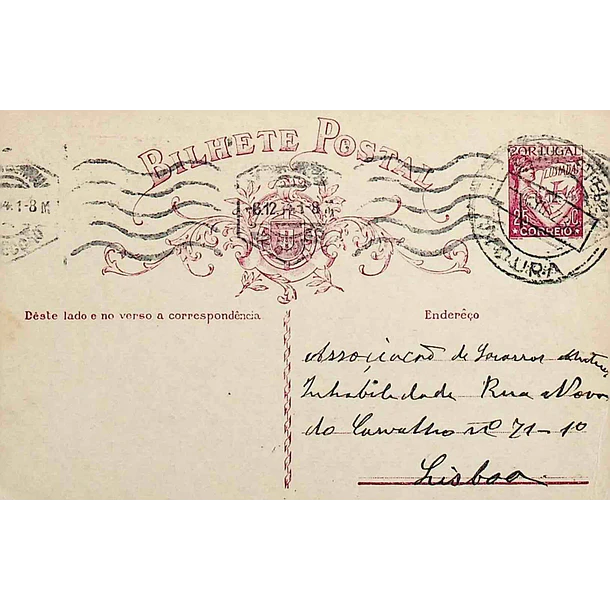 BILHETE POSTAL
PORTUGAL
LUSIADAS
25 C.
CORREIO
4.1-8M
-8.12 1-8
Déste lado e no verso a correspondência
Enderêço
Associação de Socorros Mutuos
Inhabilidade Rua Nova
do Carvalho nº 71-1º
Lisboa